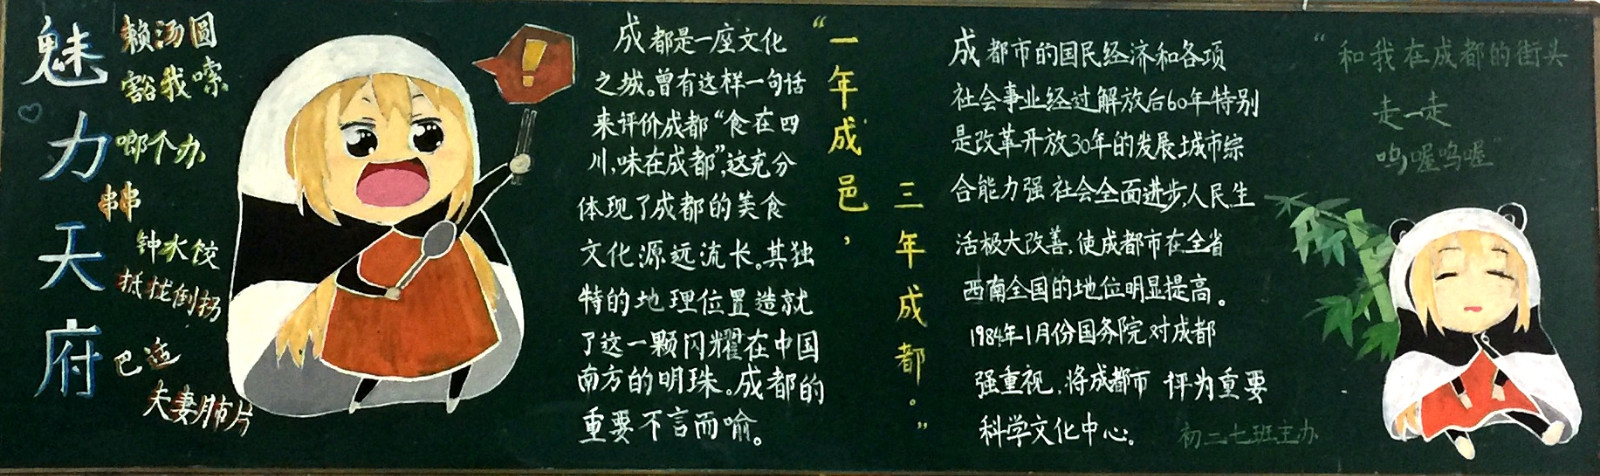 魅力天府
赖汤圆
豁我嗦
啷个办
串串
钟水饺
抵拢倒拐
巴适
夫妻肺片
成都是一座文化
之城。曾有这样一句话
来评价成都“食在四
川,味在成都”,这充分
体现了成都的美食
文化源远流长。其独
特的地理位置造就
了这一颗闪耀在中国
南方的明珠。成都的
重要不言而喻。
“一年成邑,
三年成都。”
成都市的国民经济和各项
社会事业经过解放后60年特别
是改革开放30年的发展城市综
合能力强社会全面进步,人民生
活极大改善,使成都市在全省
西南全国的地位明显提高。
1984年1月份国务院对成都
强重视,将成都市评为重要
科学文化中心。
初二七班主办
“和我在成都的街头
走一走
呜喔呜喔”